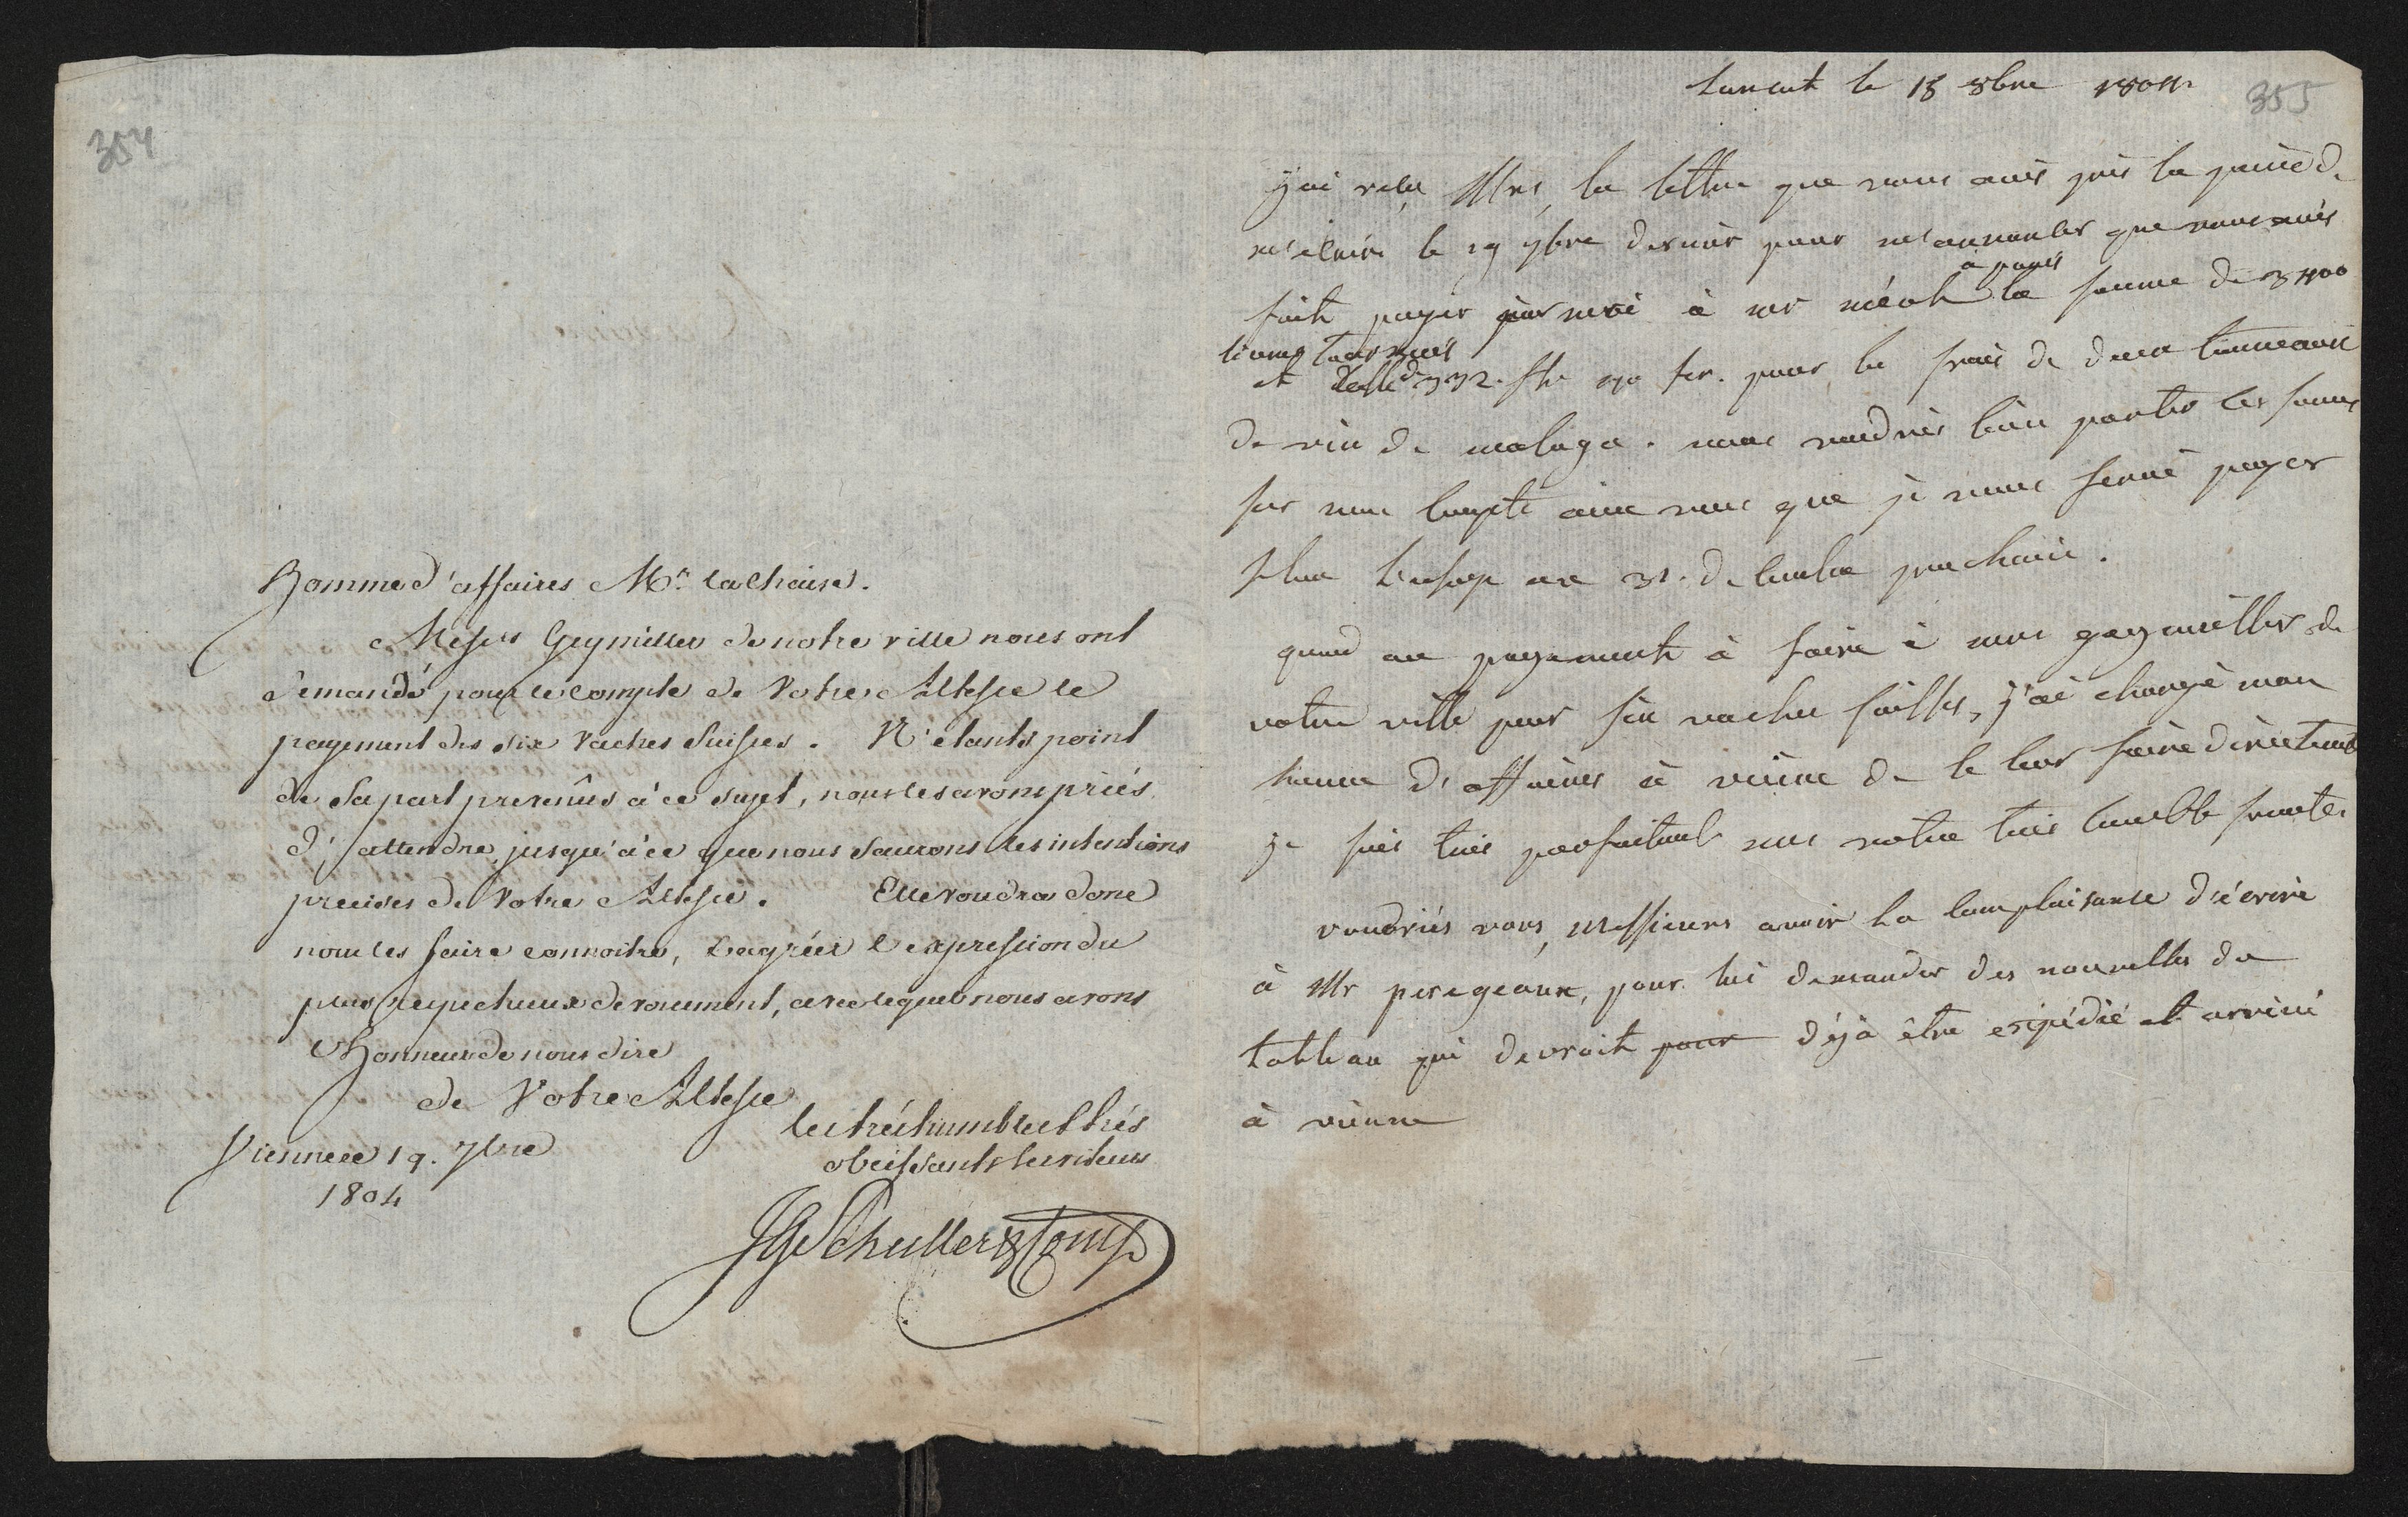 354
homme d'affaires Mr. lachaise.
Messrs Geymüller de notre ville nous ont
demandé pour le compte de Votre Altesse le
payement des six Vaches Suisses. N'étants point
de sa part prevenûs à ce sujet, nous les avons priés
d'attendre, jusqu'à ce que nous saurons les intentions
precises de Votre Altesse. Elle voudra donc
nous les faire connoitre, & agréer l'expression du
plus respectueux devouement, avec lequel nous avons
l'honneur de nous dire
de Votre Altesse
les très humbles & très
obeissants Serviteurs
Vienne ce 19. 7bre
1804
JG Schuller & Comp
355
le 15 8bre 1804
j'ai reçu Mrs, la lettre que vous avés pris la peine de
m'écrire le 19 7bre dernier pour m'annoncer que vous avés
fait payer par moi à mr méot à paris la somme de 3400
livres tournois
et celle de 332 fl. 40 kr. pour les frais de deux tonneaux
de vin de malaga. vous voudrés bien porter ces sommes
sur mon compte que je vous ferai payer
selon l'usage au 31. de prochain.
quand au payement à faire à mrs geymüller de
votre ville pour six vaches suisses, j'ai chargé mon
homme d'affaires à viène de le leur faire directement
je suis très parfaitement mrs votre très humble
voudriés vous, messieurs avoir la complaisance d'écrire
à Mr peregeaux, pour lui demander des nouvelles du
tableau qui devrait pour déjà être expédié et arrivé
à vienne